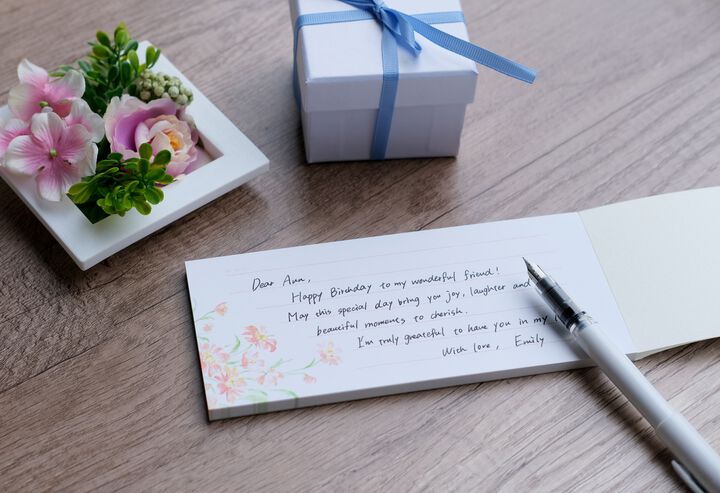 Dear Ann,
Happy Birthday to my wonderful friend!
May this special day bring you joy, laughter and
beautiful moments to cherish.
I'm truly greatful to have you in my
With love, Emily